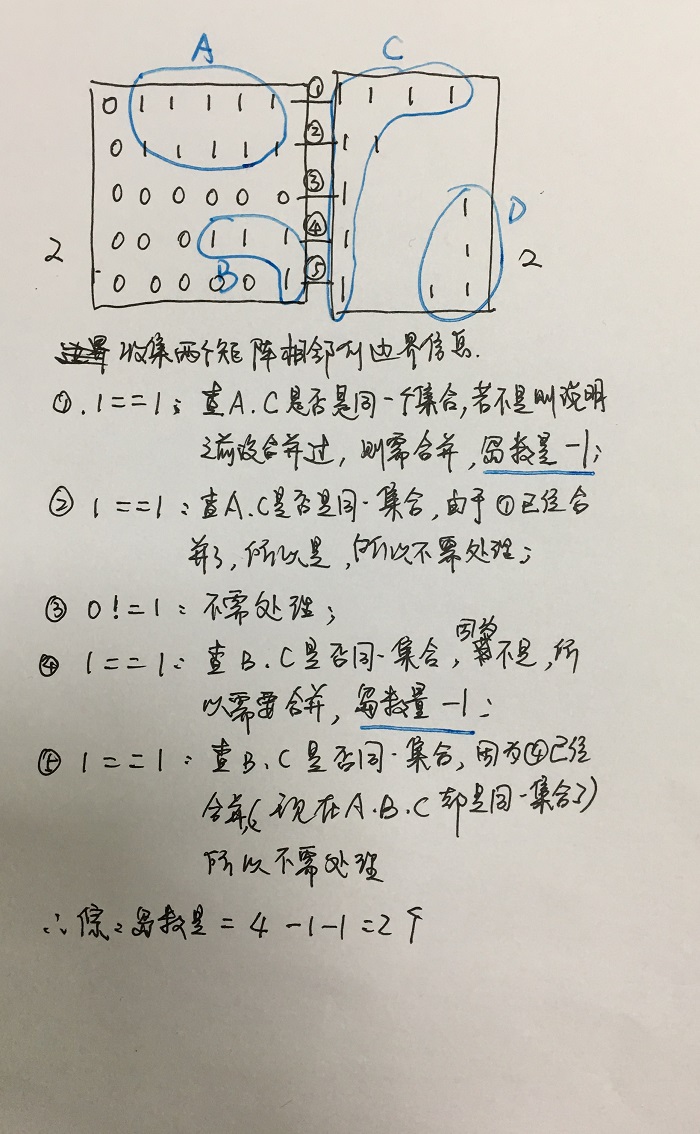 A C
0 1 1 1 1 1 ① 1 1 1 1
0 1 1 1 1 1 ② 1 1
0 0 0 0 0 0 ③ 1 1 D
2 0 0 0 1 1 1 ④ 1 1 2
0 0 0 0 0 1 ⑤ 1 1 1
B
收集两个矩阵相邻列边界信息.
①. 1==1: 查A.C是否是同一个集合,若不是则说明
之前没合并过, 则需合并, 岛数量-1;
② 1==1: 查A.C是否是同一集合,由于①已经合
并了,所以是,所以不需处理;
③ 0!=1: 不需处理;
④ 1==1: 查B.C是否同一集合,因为不是,所
以需要合并,岛数量-1;
⑤ 1==1: 查B.C是否同一集合,因为④已经
合并(现在A.B.C都是同一集合了)
所以不需处理
∴综:岛数量=4-1-1=2个